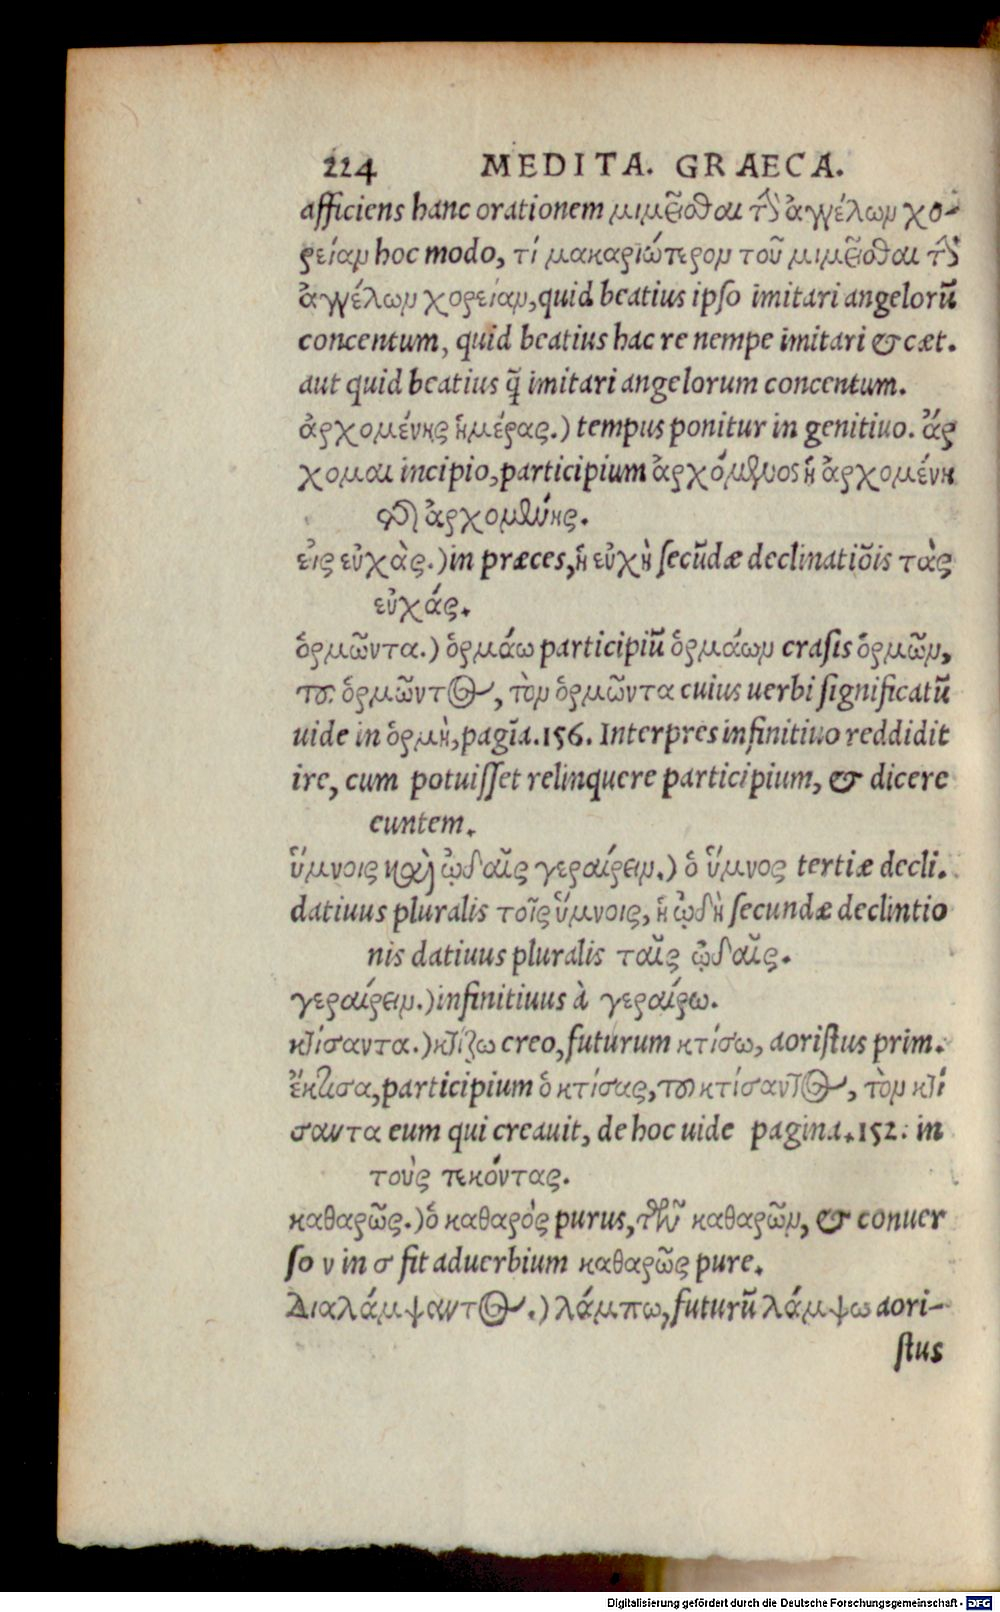 224 MEDITA. GRAECA.
afficiens hanc orationem μιμεῖσθαι τῶν ἀγγέλων χο-
ρείαν hoc modo, τί μακαριώτερον τοῦ μιμεῖσθαι τῶν
ἀγγέλων χορείαν, quid beatius ipso imitari angelorū
concentum, quid beatius hac re nempe imitari & cæt.
aut quid beatius q̃ imitari angelorum concentum.
ἀρχομένης ἡμέρας.) tempus ponitur in genitiuo. ἄρ
χομαι incipio, participium ἀρχόμενος ἡ ἀρχομένη
τῆς ἀρχομένης.
εἰς εὐχὰς.) in præces, ἡ εὐχὴ secūdæ declinatiōis τὰς
εὐχάς.
ὁρμῶντα.) ὁρμάω participiū ὁρμάων crasis ὁρμῶν,
του ὁρμῶντος, τὸν ὁρμῶντα cuius uerbi significatū
uide in ὁρμὴ, pagīa. 156. Interpres infinitiuo reddidit
ire, cum potuisset relinquere participium, & dicere
euntem.
ὕμνοις καὶ ᾠδαῖς γεραίρειν.) ὁ ὕμνος tertiæ decli.
datiuus pluralis τοῖς ὕμνοις, ἡ ᾠδὴ secundæ declintio
nis datiuus pluralis ταῖς ᾠδαῖς.
γεραίρειν.) infinitiuus à γεραίρω.
κτίσαντα.) κτίζω creo, futurum κτίσω, aoristus prim.
ἔκτισα, participium ὁ κτίσας, του κτίσαντος, τὸν κτί
σαντα eum qui creauit, de hoc uide pagina. 152. in
τοὺς τεκόντας.
καθαρῶς.) ὁ καθαρὸς purus, τῶν καθαρῶν, & conuer
so ν in σ fit aduerbium καθαρῶς pure.
Διαλάμψαντος.) λάμπω, futurū λάμψω aori-
stus
Digitalisierung gefördert durch die Deutsche Forschungsgemeinschaft - DFG